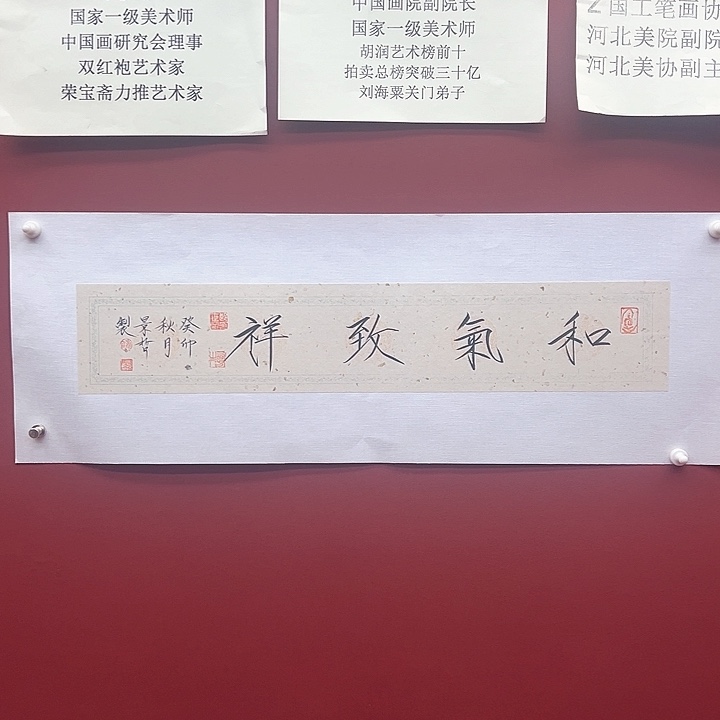 国家一级美术师
中国画研究会理事
双红袍艺术家
荣宝斋力推艺术家
中国画院副院长
国家一级美术师
胡润艺术榜前十
拍卖总榜突破三十亿
刘海粟关门弟子
国工笔画协
河北美院副院
河北美协副主
和氣致祥
癸卯
秋月
景哲
製